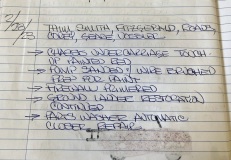 2/28/23
THIM, SMITH, FITZGERALD, ROADS,
→ CHASSIS UNDERCARRIAGE TOUCH
UP PAINTED RED
→ PUMP SANDED / WIRE BRUSHED
PREP FOR PAINT
→ FIREWALL PRIMERED
→ GROUND LADDER RESTORATION
CONTINUED
→ PARTS WASHER AUTOMATIC
CLOSER REPAIR